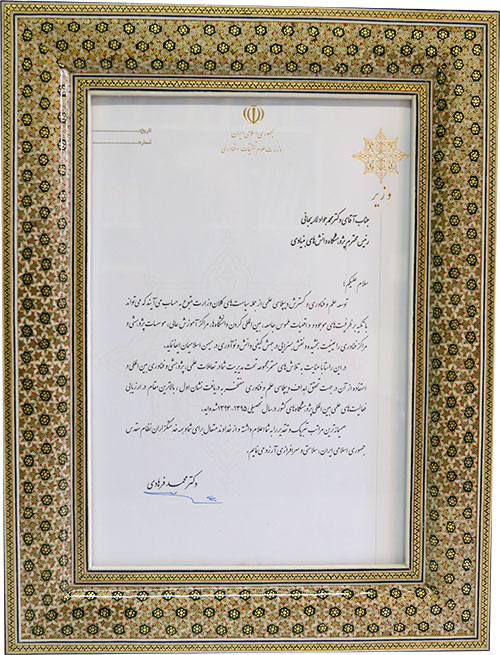 جمهوری اسلامی ایران
وزارت علوم، تحقیقات و فناوری
تاریخ:
شماره:
وزیر
جناب آقای دکتر محمدجواد لاریجانی
رئیس محترم پژوهشگاه دانش‌های بنیادی
سلام علیکم؛
توسعه علم و فناوری و گسترش دیپلماسی علمی از جمله سیاست‌های کلان وزارت متبوع به حساب می‌آیند که می‌تواند
با تکیه بر ظرفیت‌های موجود و واقعیات ملموس جامعه، بین‌المللی کردن دانشگاه‌ها، مراکز آموزش عالی، موسسات پژوهشی و
مراکز فناوری را عینیت بخشیده و نقش بسزایی در جنبش کیفی دانش و نوآوری در میهن اسلامی‌مان ایفا نماید.
در این راستا با عنایت به تلاش‌های مستمر مجموعه تحت مدیریت شما در تعاملات علمی، پژوهشی و فناوری بین‌المللی و
استفاده از آن در جهت تحقق اهداف دیپلماسی علمی و فناوری مفتخر به دریافت نشان اول، بالاترین مقام در ارزیابی
فعالیت‌های علمی بین‌المللی پژوهشگاه‌های کشور در سال تحصیلی ۱۳۹۵-۱۳۹۴ شده‌اید.
صمیمانه‌ترین مراتب تبریک و تقدیر را به شما اعلام داشته و از خداوند متعال برای شما و همه خدمتگزاران نظام مقدس
جمهوری اسلامی ایران، سلامتی و سرافرازی آرزو می‌نمایم.
دکتر محمد فرهادی